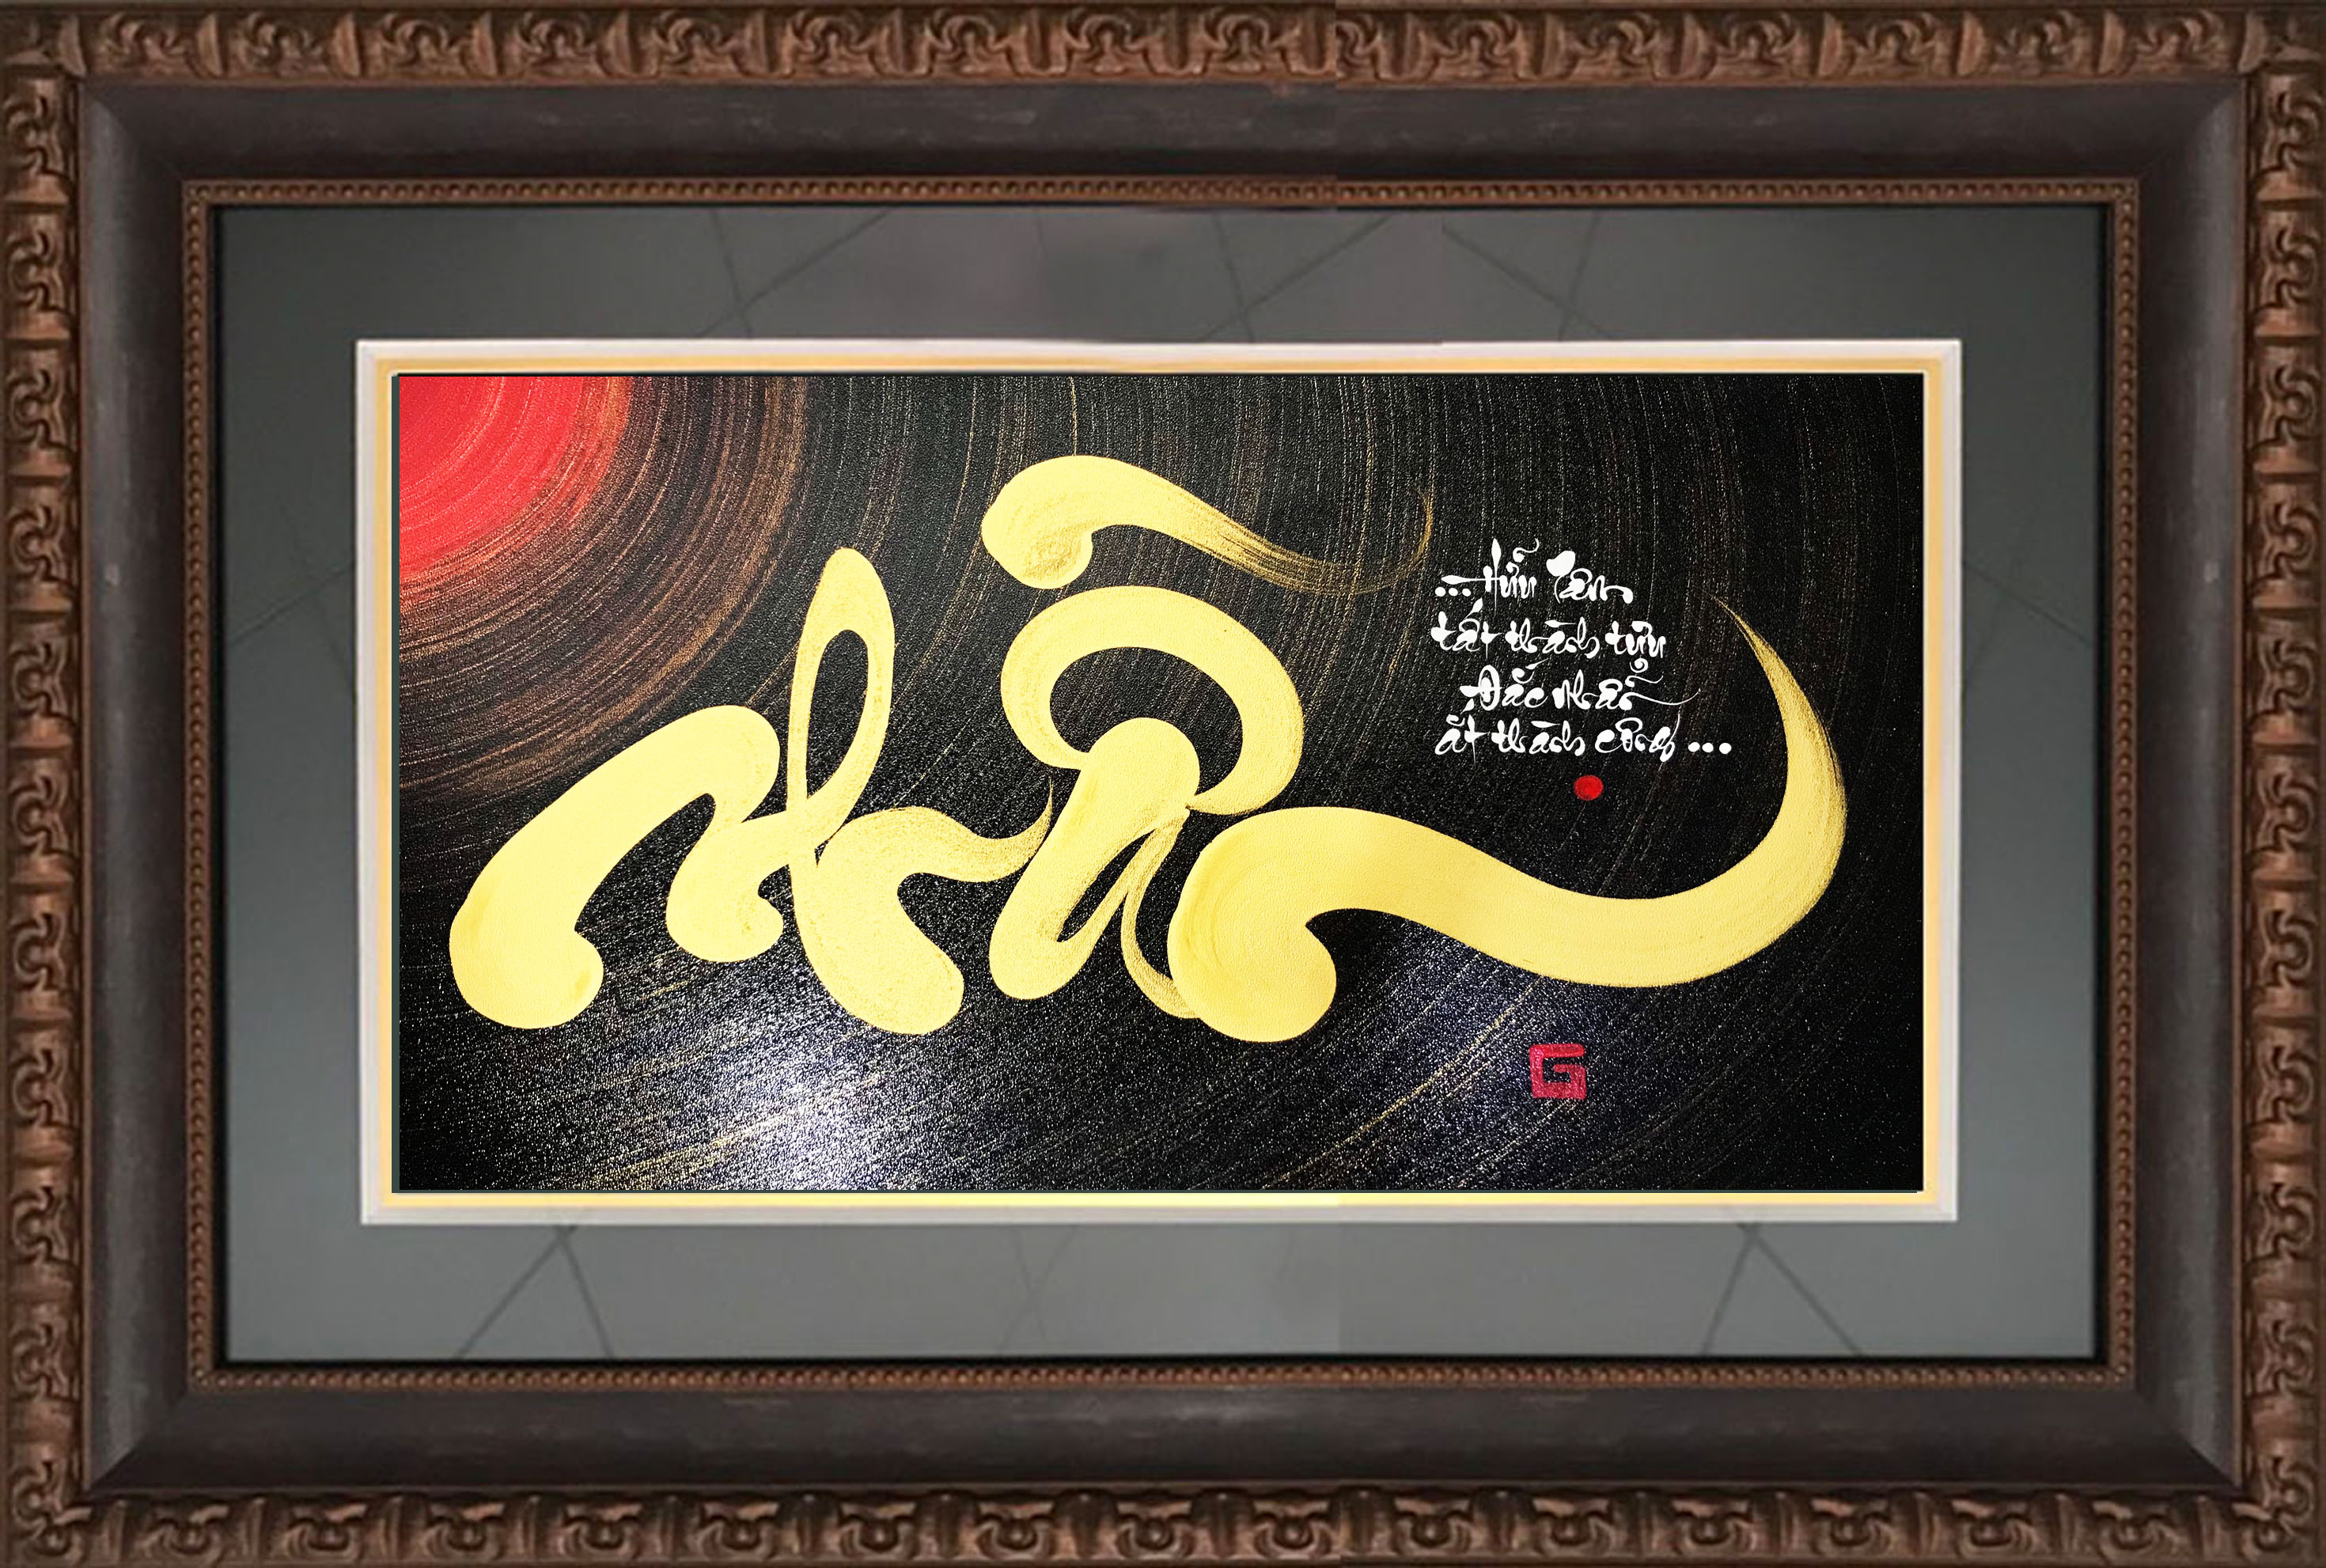 Nhẫn
...Hữu Tâm
tất thành tựu
Đắc Nhẫn
ắt thành công...
G